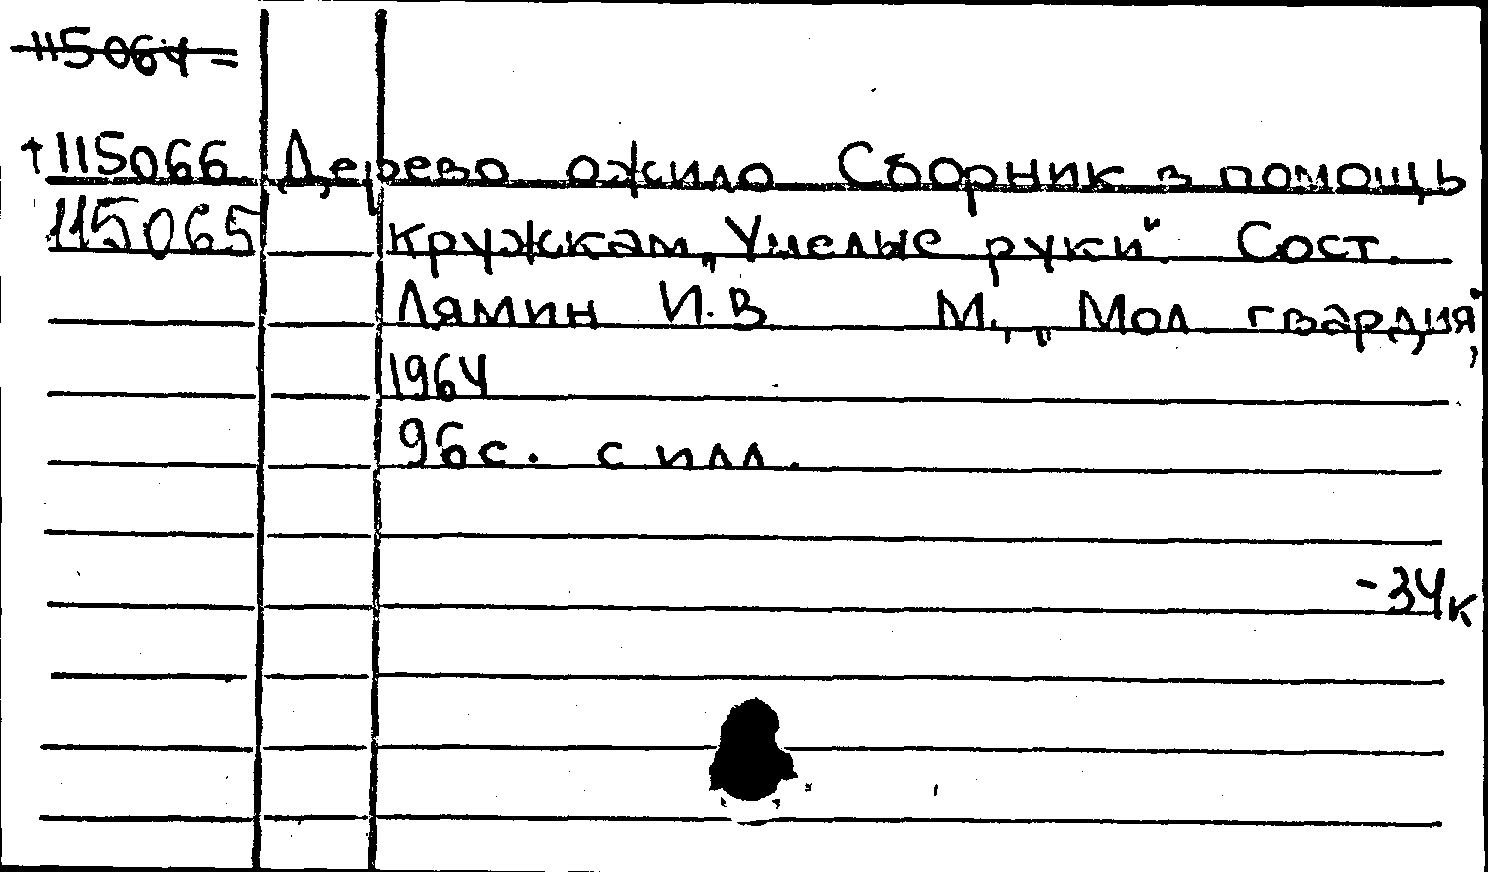 115064 =
+115066 Дерево ожило Сборник в помощь
115065 кружкам „Умелые руки" Сост.
Лямин И.В М., „Мол. гвардия",
1964
96с. с илл.
-34к